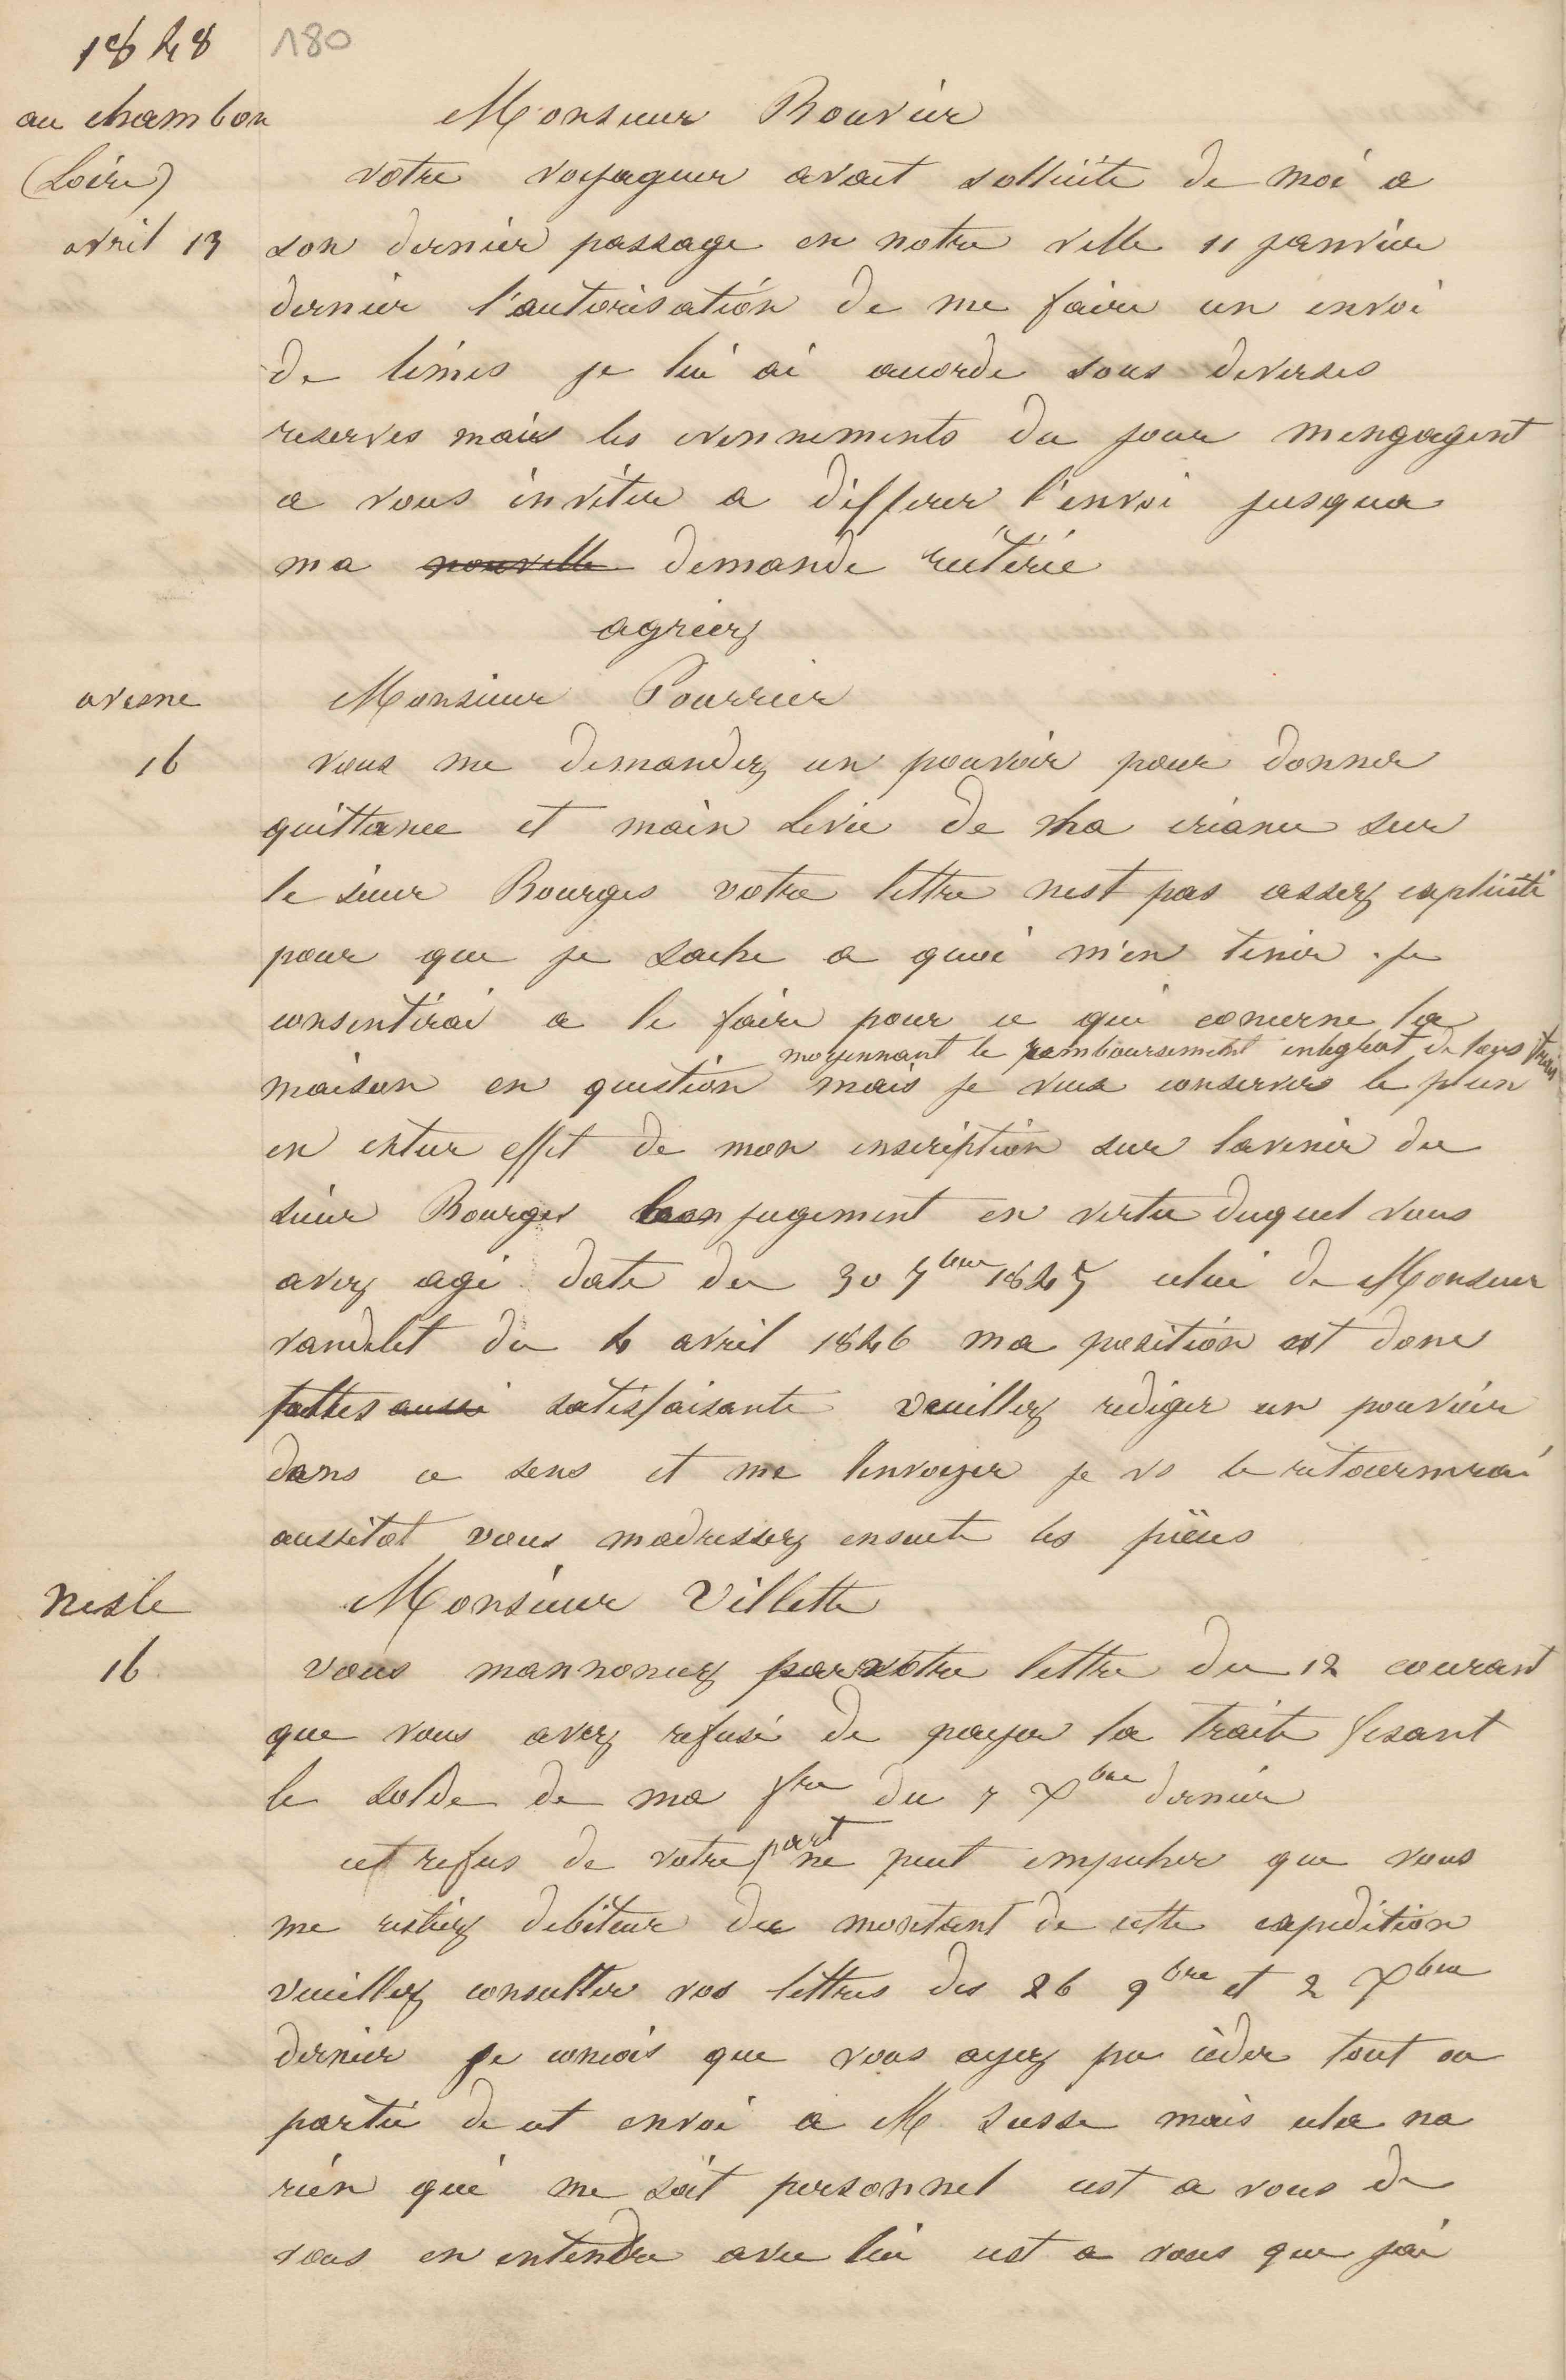 1848
180
au chambon
(Loire)
avril 13
Monsieur Bouvier
votre voyageur avait sollicite de moi a
son dernier passage en notre ville 11 janvier
dernier l'autorisation de me faire un envoi
de limes je lui ai accorde sous diverses
reserves mais les evennements du jour mengagent
a vous inviter a differer l'envoi jusqua
ma nouvelle demande réitérée
agreez
avesne
16
Monsieur Pourrier
vous me demandez un pouvoir pour donner
quittance et main levée de ma créance sur
le sieur Bourges votre lettre nest pas assez explicite
pour que je sache a quoi m'en tenir . je
consentirai a le faire pour ce qui concerne la
moyennant le remboursement integral de tous frais
maison en question mais je veux conserver le plein
en entier effet de mon inscription sur lavenir du
sieur Bourges jugement en vertu duquel vous
avez agi date du 30 7bre 1845 celui de Monsieur
vandelet du 4 avril 1846 ma position est donc
aussi satisfaisante veuillez rediger un pouvoir
dans ce sens et me lenvoyer je vs le retournerai
aussitot vous madressez ensuite les pièces
Nesle
16
Monsieur Villette
vous mannoncez par votre lettre du 12 courant
que vous avez refusé de payer la traite fesant
le solde de ma fre du 7 Xbre dernier
cet refus de votre part ne peut empecher que vous
me restiez debiteur du montant de cette expedition
veuillez consulter vos lettres des 26 9bre et 2 Xbre
dernier je concois que vous ayez pu céder tout ou
partie de cet envoi a M Susse mais cela na
rien qui me soit personnel cest a vous de
vous en entendre avec lui cest a vous que jai